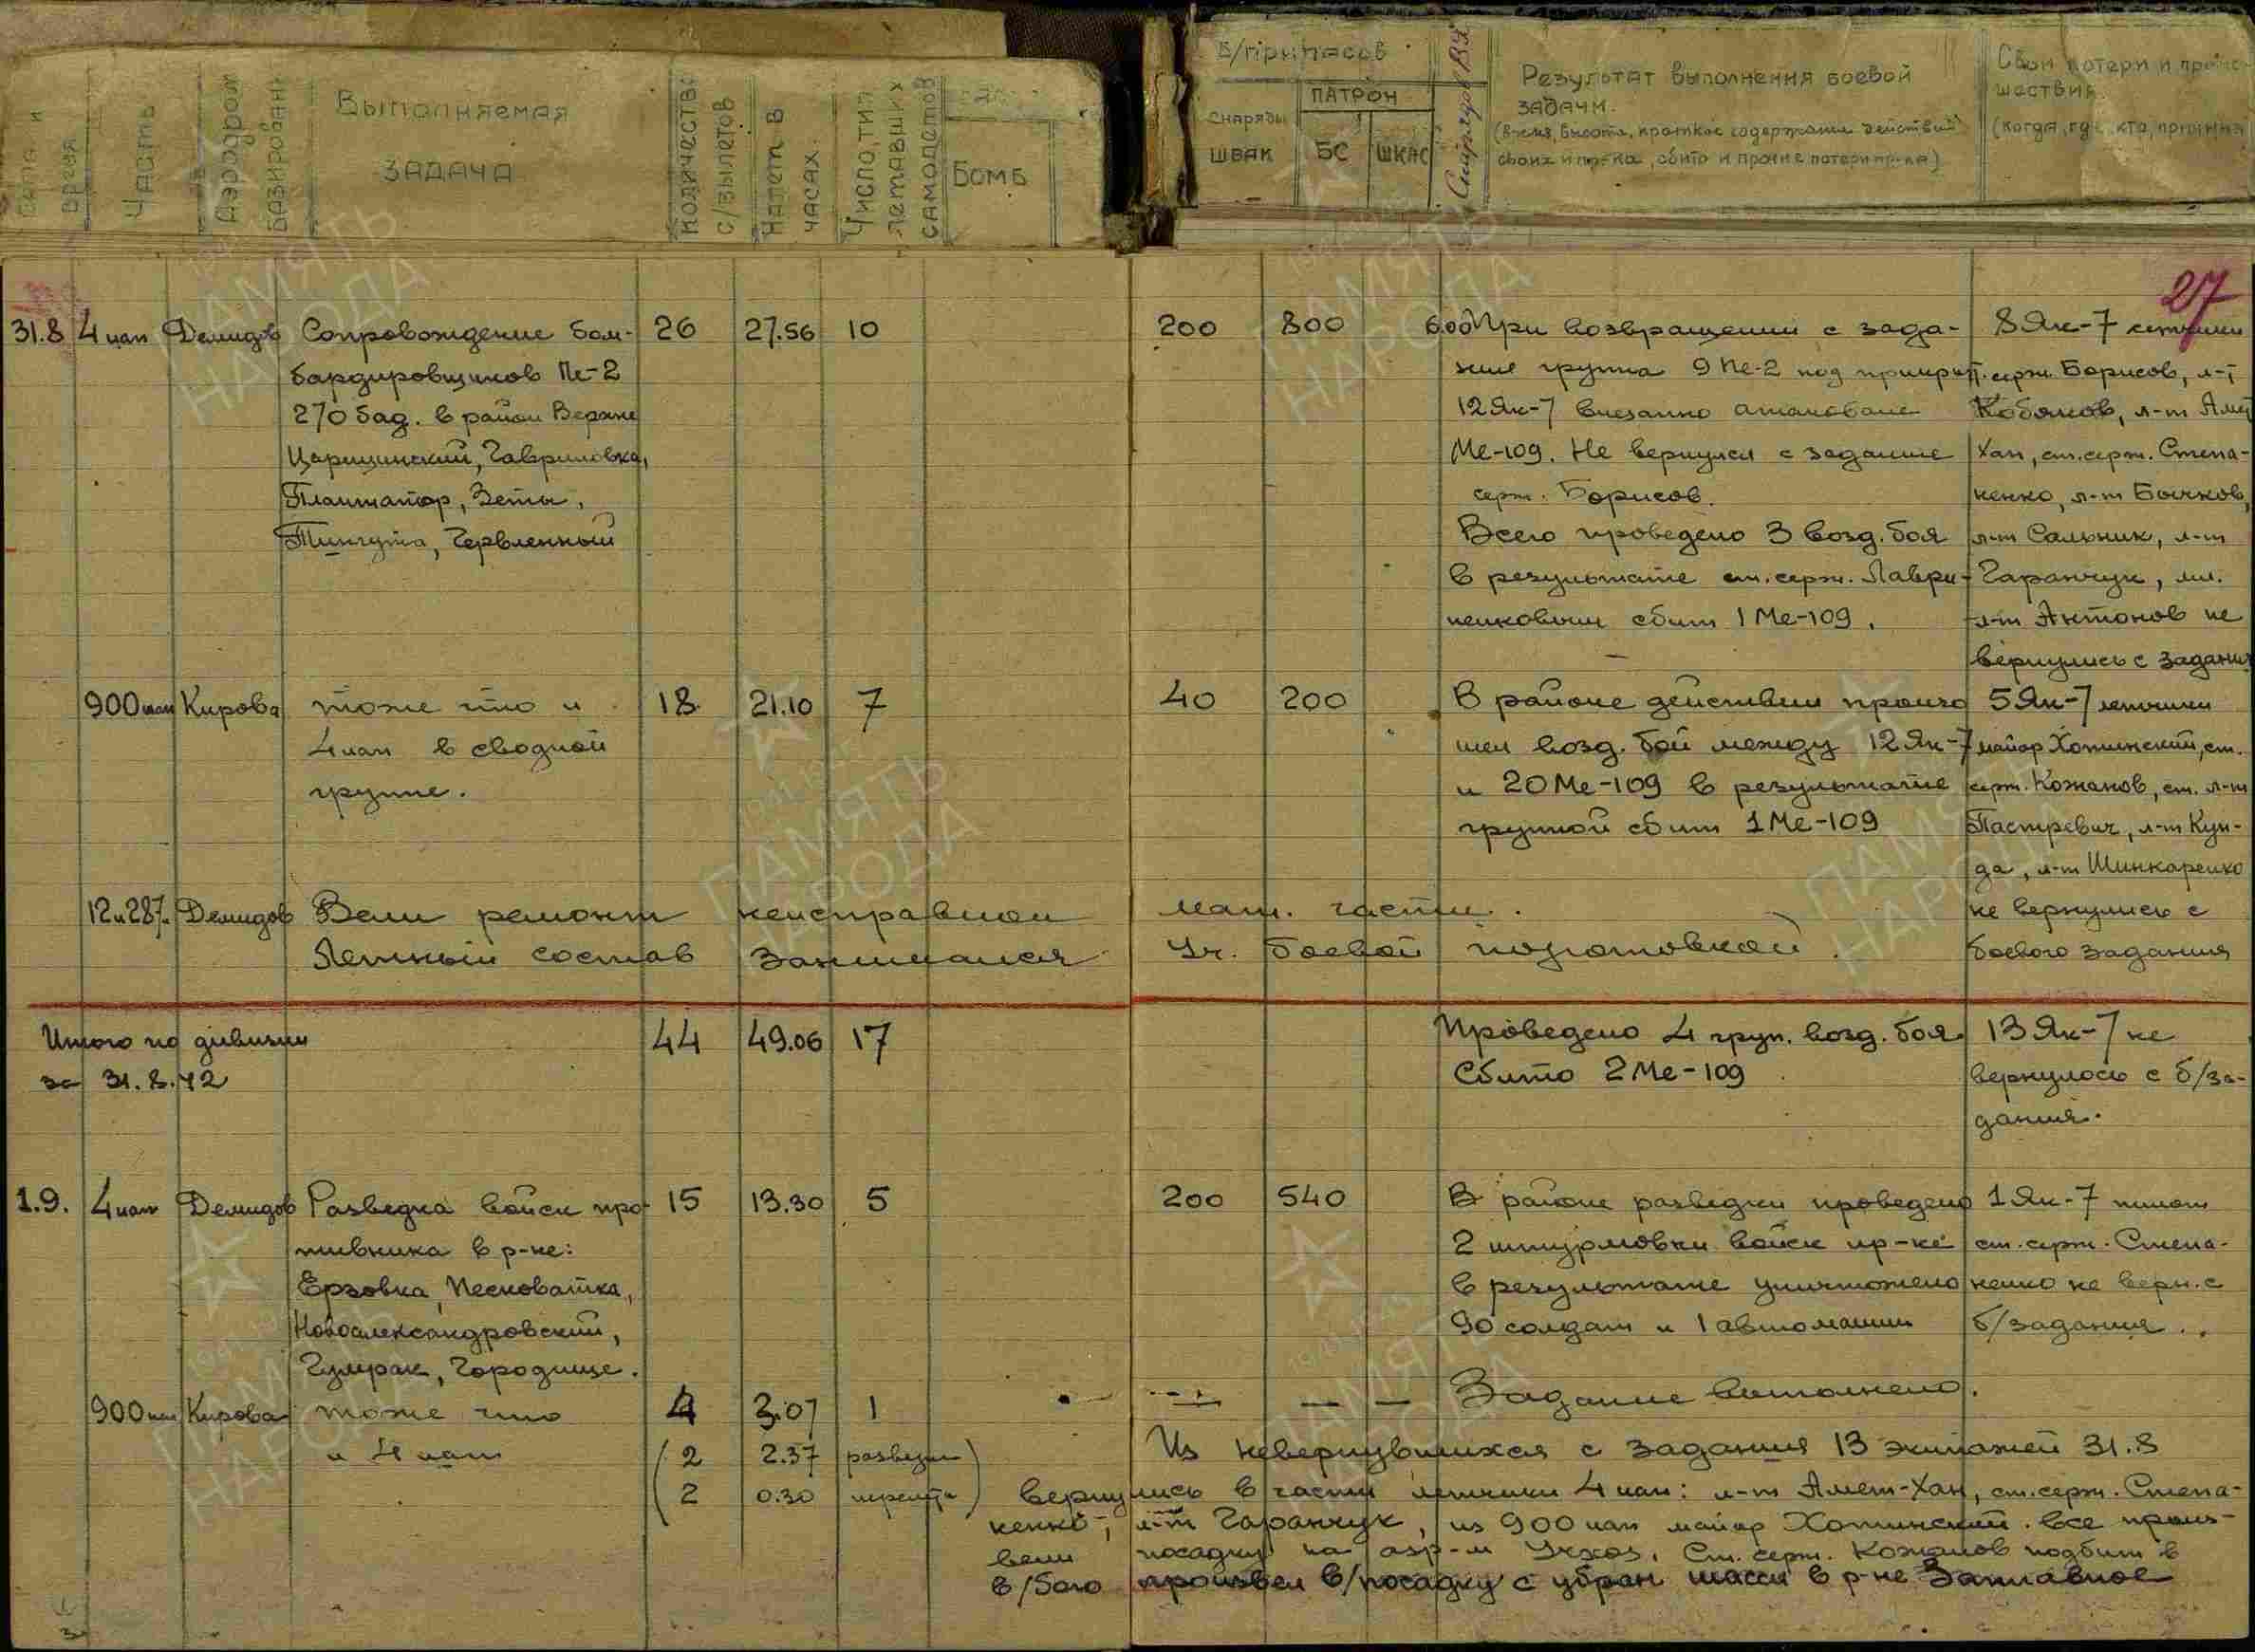 Дата и время
Часть
Аэродром базирования
Выполняемая
задача
Количество с/вылетов
Налет в часах.
Число, тип летавших самолетов
Бомб
Б/припасов
снаряды
ШВАК
ПАТРОН
БС
ШКАС
Результат выполнения боевой
задачи.
(Время, высота, краткое содержание действий
своих и пр-ка, сбито и прочие потери пр-ка)
Свои потери и проис-
шествия
(когда, где, кто, причина)
27
31.8 4 иап Демидов Сопровождение бом- 26 27.56 10
бардировщиков Пе-2
270 бад. в район Верхне
Царицинский, Гавриловка,
Плантатор, Зеты,
Тингута, Червленный
200 800 600 При возвращении с зада-
ние группа 9 Пе-2 под прикрыт.
12 Як-7 внезапно атакованы
Ме-109. Не вернулся с задание
серж. Борисов.
Всего проведено 3 возд. боя
в результате ст. серж. Лаври-
ненковым сбит 1 Ме-109.
8 Як-7 летчики
серж. Борисов, л-т
Кобяков, л-т Амет
Хан, ст. серж. Степа-
ненко, л-т Бычков,
л-т Сальник, л-т
Гаранчук, мл.
л-т Антонов не
вернулись с задания
900 иап Кирова тоже что и 18 21.10 7
4 иап в сводной
группе.
40 200 В районе действии произо
шел возд. бой между 12 Як-7
и 20 Ме-109 в результате
группой сбит 1 Ме-109
5 Як-7 летчики
майор Хотинский, ст.
серж. Кожанов, ст. л-т
Пастревич, л-т Кун-
да, л-т Шинкаренко
не вернулись с
боевого задания
12 и 287 Демидов Вели ремонт неисправной мат. части.
Летный состав занимался Уч. боевой подготовкой.
Итого по дивизии 44 49.06 17
за 31.8.42
Проведено 4 груп. возд. боя
Сбито 2 Ме-109
13 Як-7 не
вернулось с б/за-
дания.
1.9. 4 иап Демидов Разведка войск про- 15 13.30 5
тивника в р-не:
Ерзовка, Песковатка,
Новоалександровский,
Гумрак, Городище.
200 540 В районе разведки проведено
2 штурмовки войск пр-ка
в результате уничтожено
90 солдат и 1 автомашин
1 Як-7 пилот
ст. серж. Степа-
ненко не верн. с
б/задания.
900 иап Кирова тоже что 4 3.07 1 — — — Задание выполнено.
и 4 иап (2 2.37 разведки
2 0.30 перелета)
Из невернувшихся с задания 13 экипажей 31.8
вернулись в части летчики 4 иап: л-т Амет-Хан, ст. серж. Степа-
ненко, л-т Гаранчук, из 900 иап майор Хотинский. все произ-
вели посадку на аэр-м Учхоз. Ст. серж. Кожанов подбит в
в/бою произвел в/посадку с убран шасси в р-не Заплавное
ПАМЯТЬ
НАРОДА